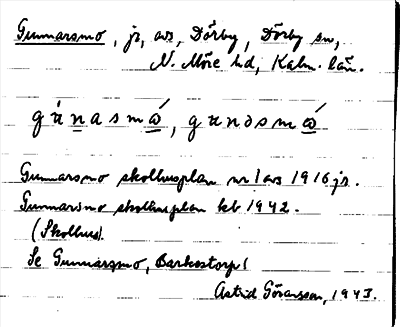 Gunnarsmo, jr, avs, Dörby, Dörby sn,
N. Möre hd, Kalm. län.
gúnasmǻ, gunəsmǻ
Gunnarsmo skolhusplan nr 1 avs 1916 jr.
Gunnarsmo skolhusplan kb 1942.
(Skolhus).
Se Gunnarsmo, Barkestorp!
Astrid Göransson, 1943.